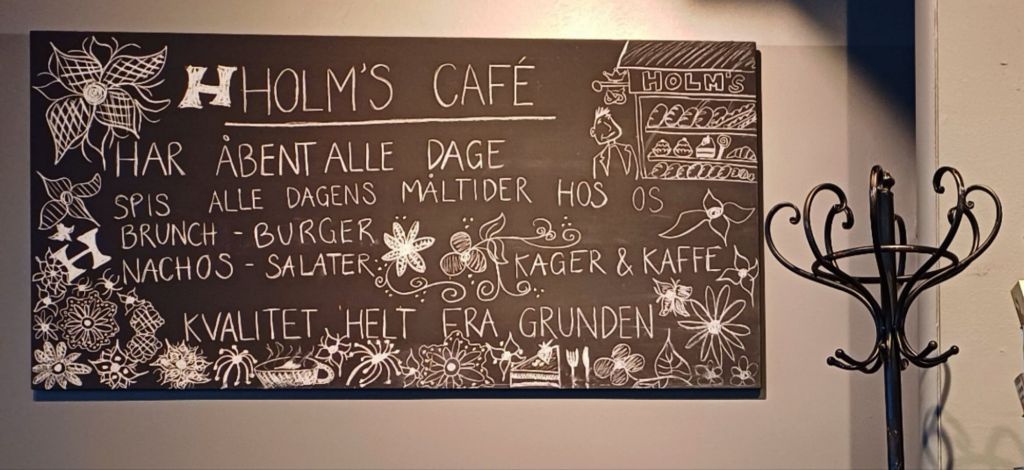 H HOLM'S CAFÉ
HOLM'S
HAR ÅBENT ALLE DAGE
SPIS ALLE DAGENS MÅLTIDER HOS OS
BRUNCH - BURGER
NACHOS - SALATER
KAGER & KAFFE
H
KVALITET HELT FRA GRUNDEN